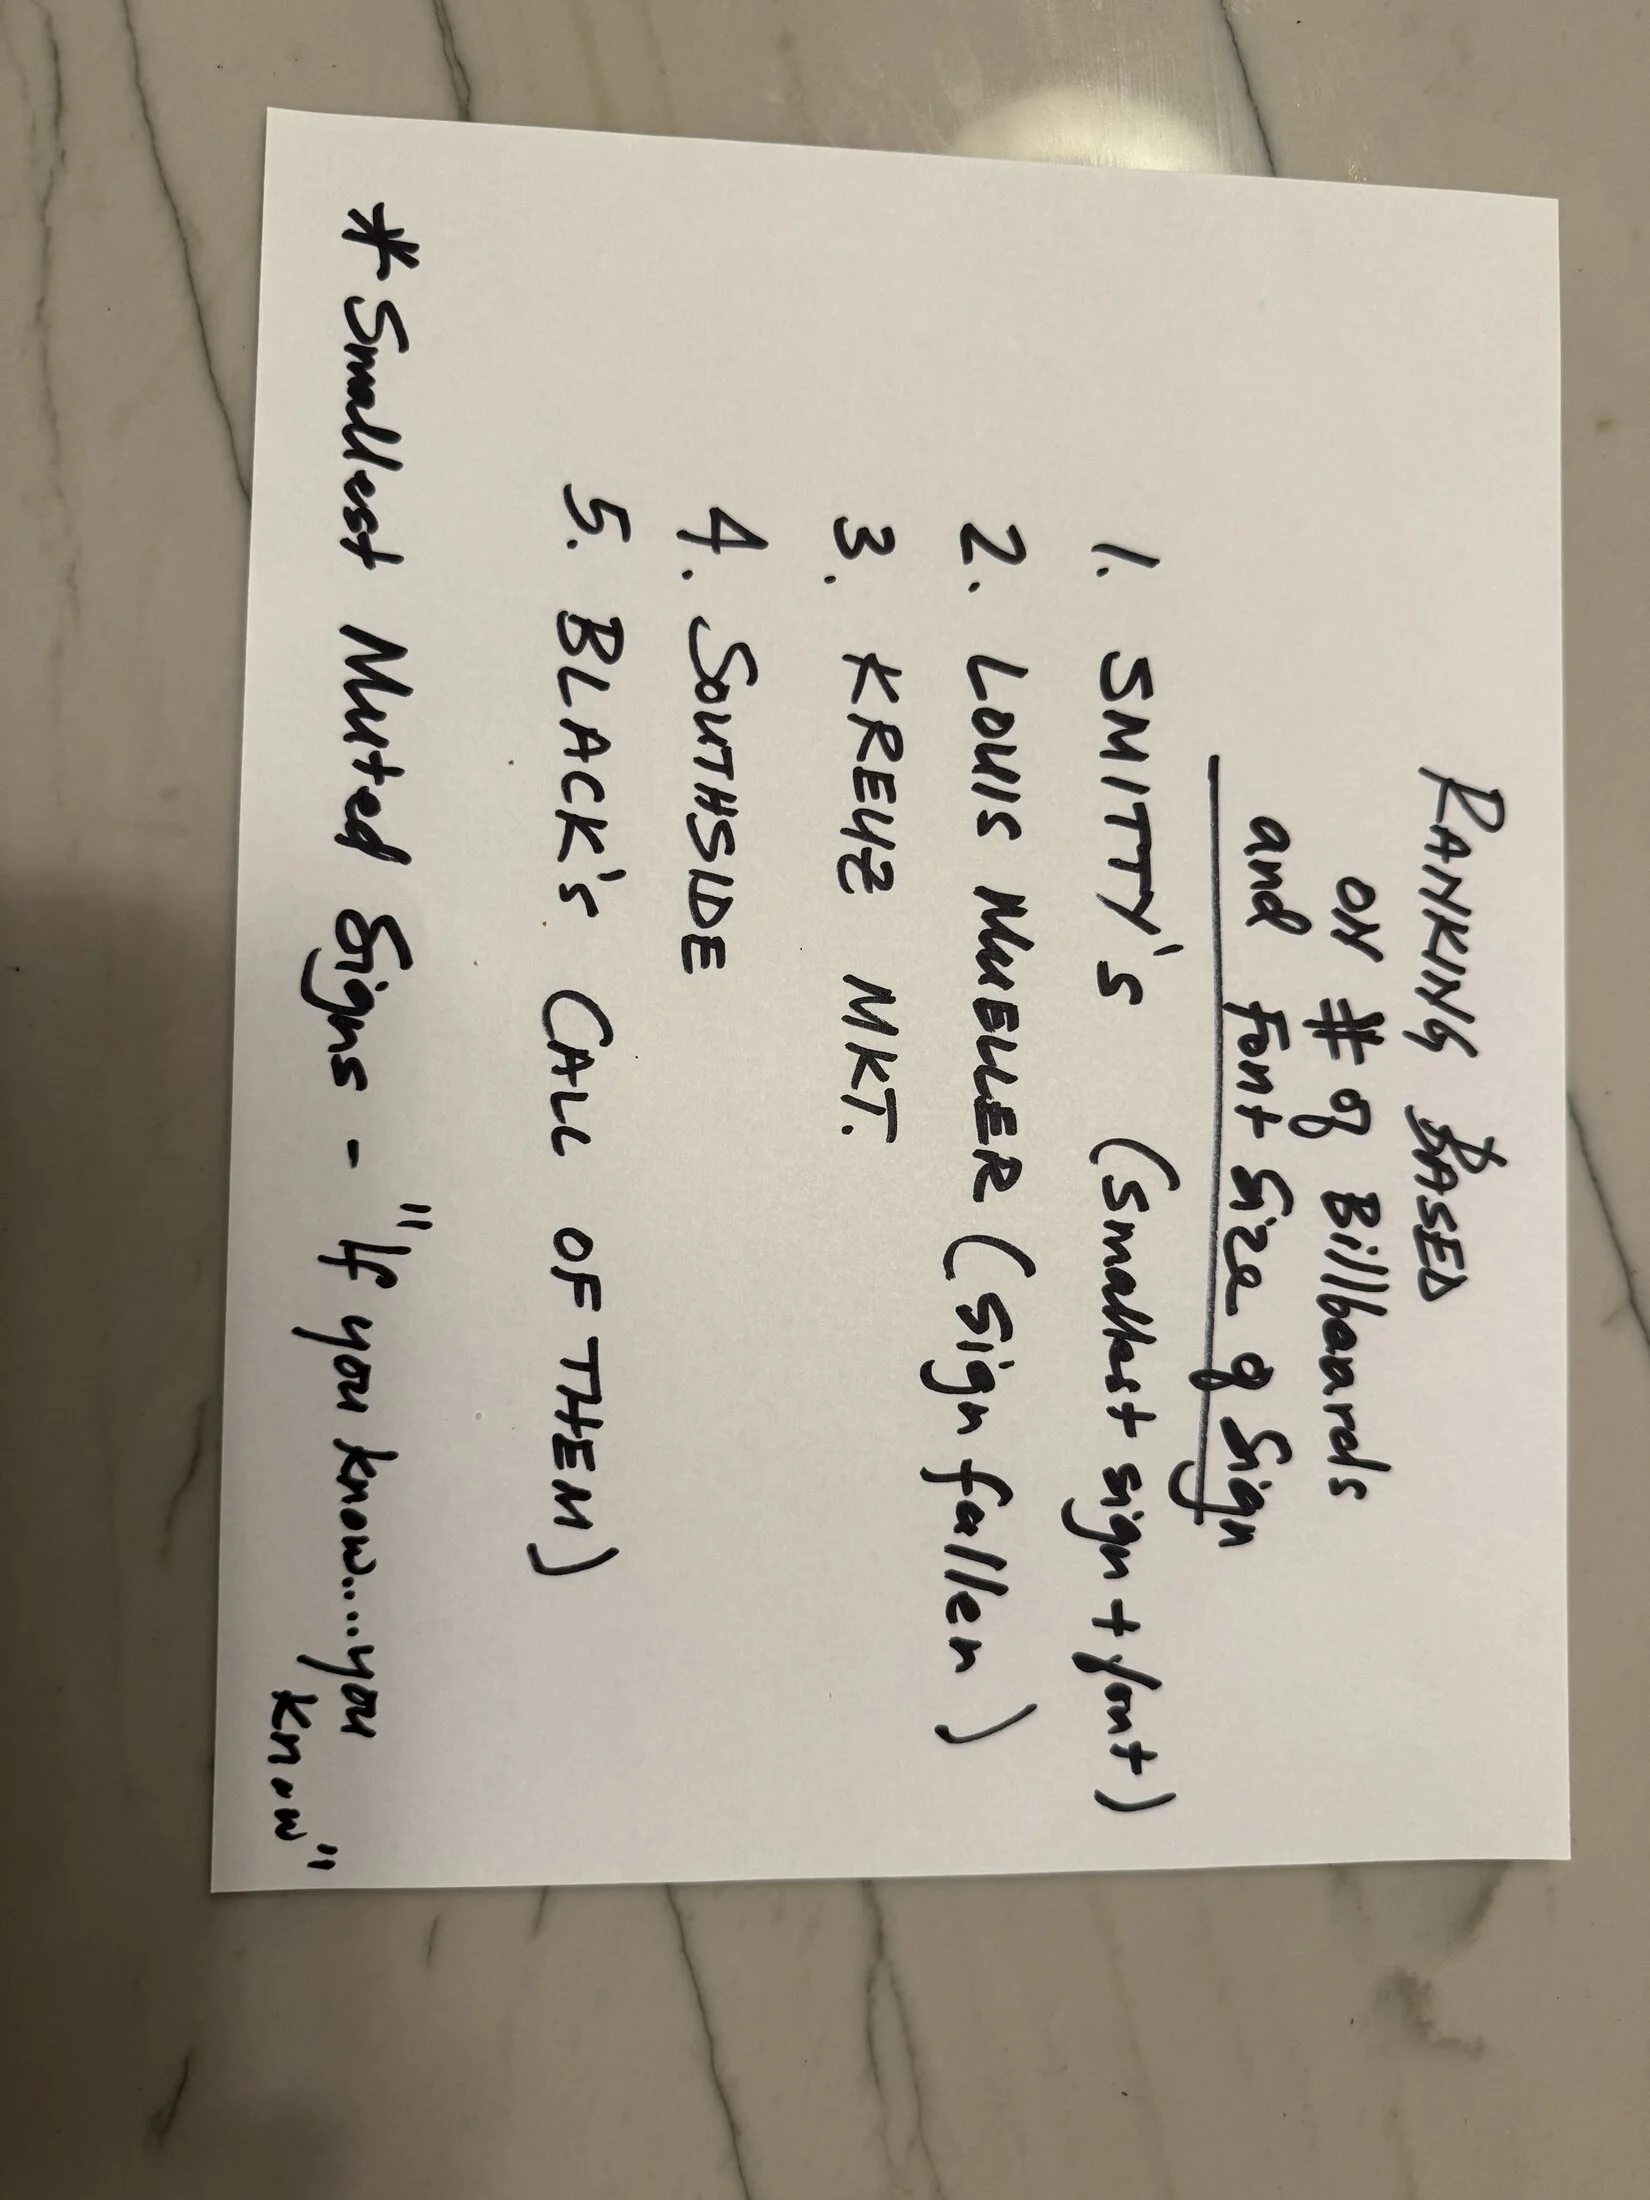 RANKING BASED
ON # of Billboards
and Font Size of Sign
1. SMITTY's (smallest sign + font)
2. LOUIS MUELLER (sign fallen)
3. KREUZ MKT.
4. SOUTHSIDE
5. BLACK's CALL OF THEM)
* Smallest Muted Signs - "If you know....you
know"